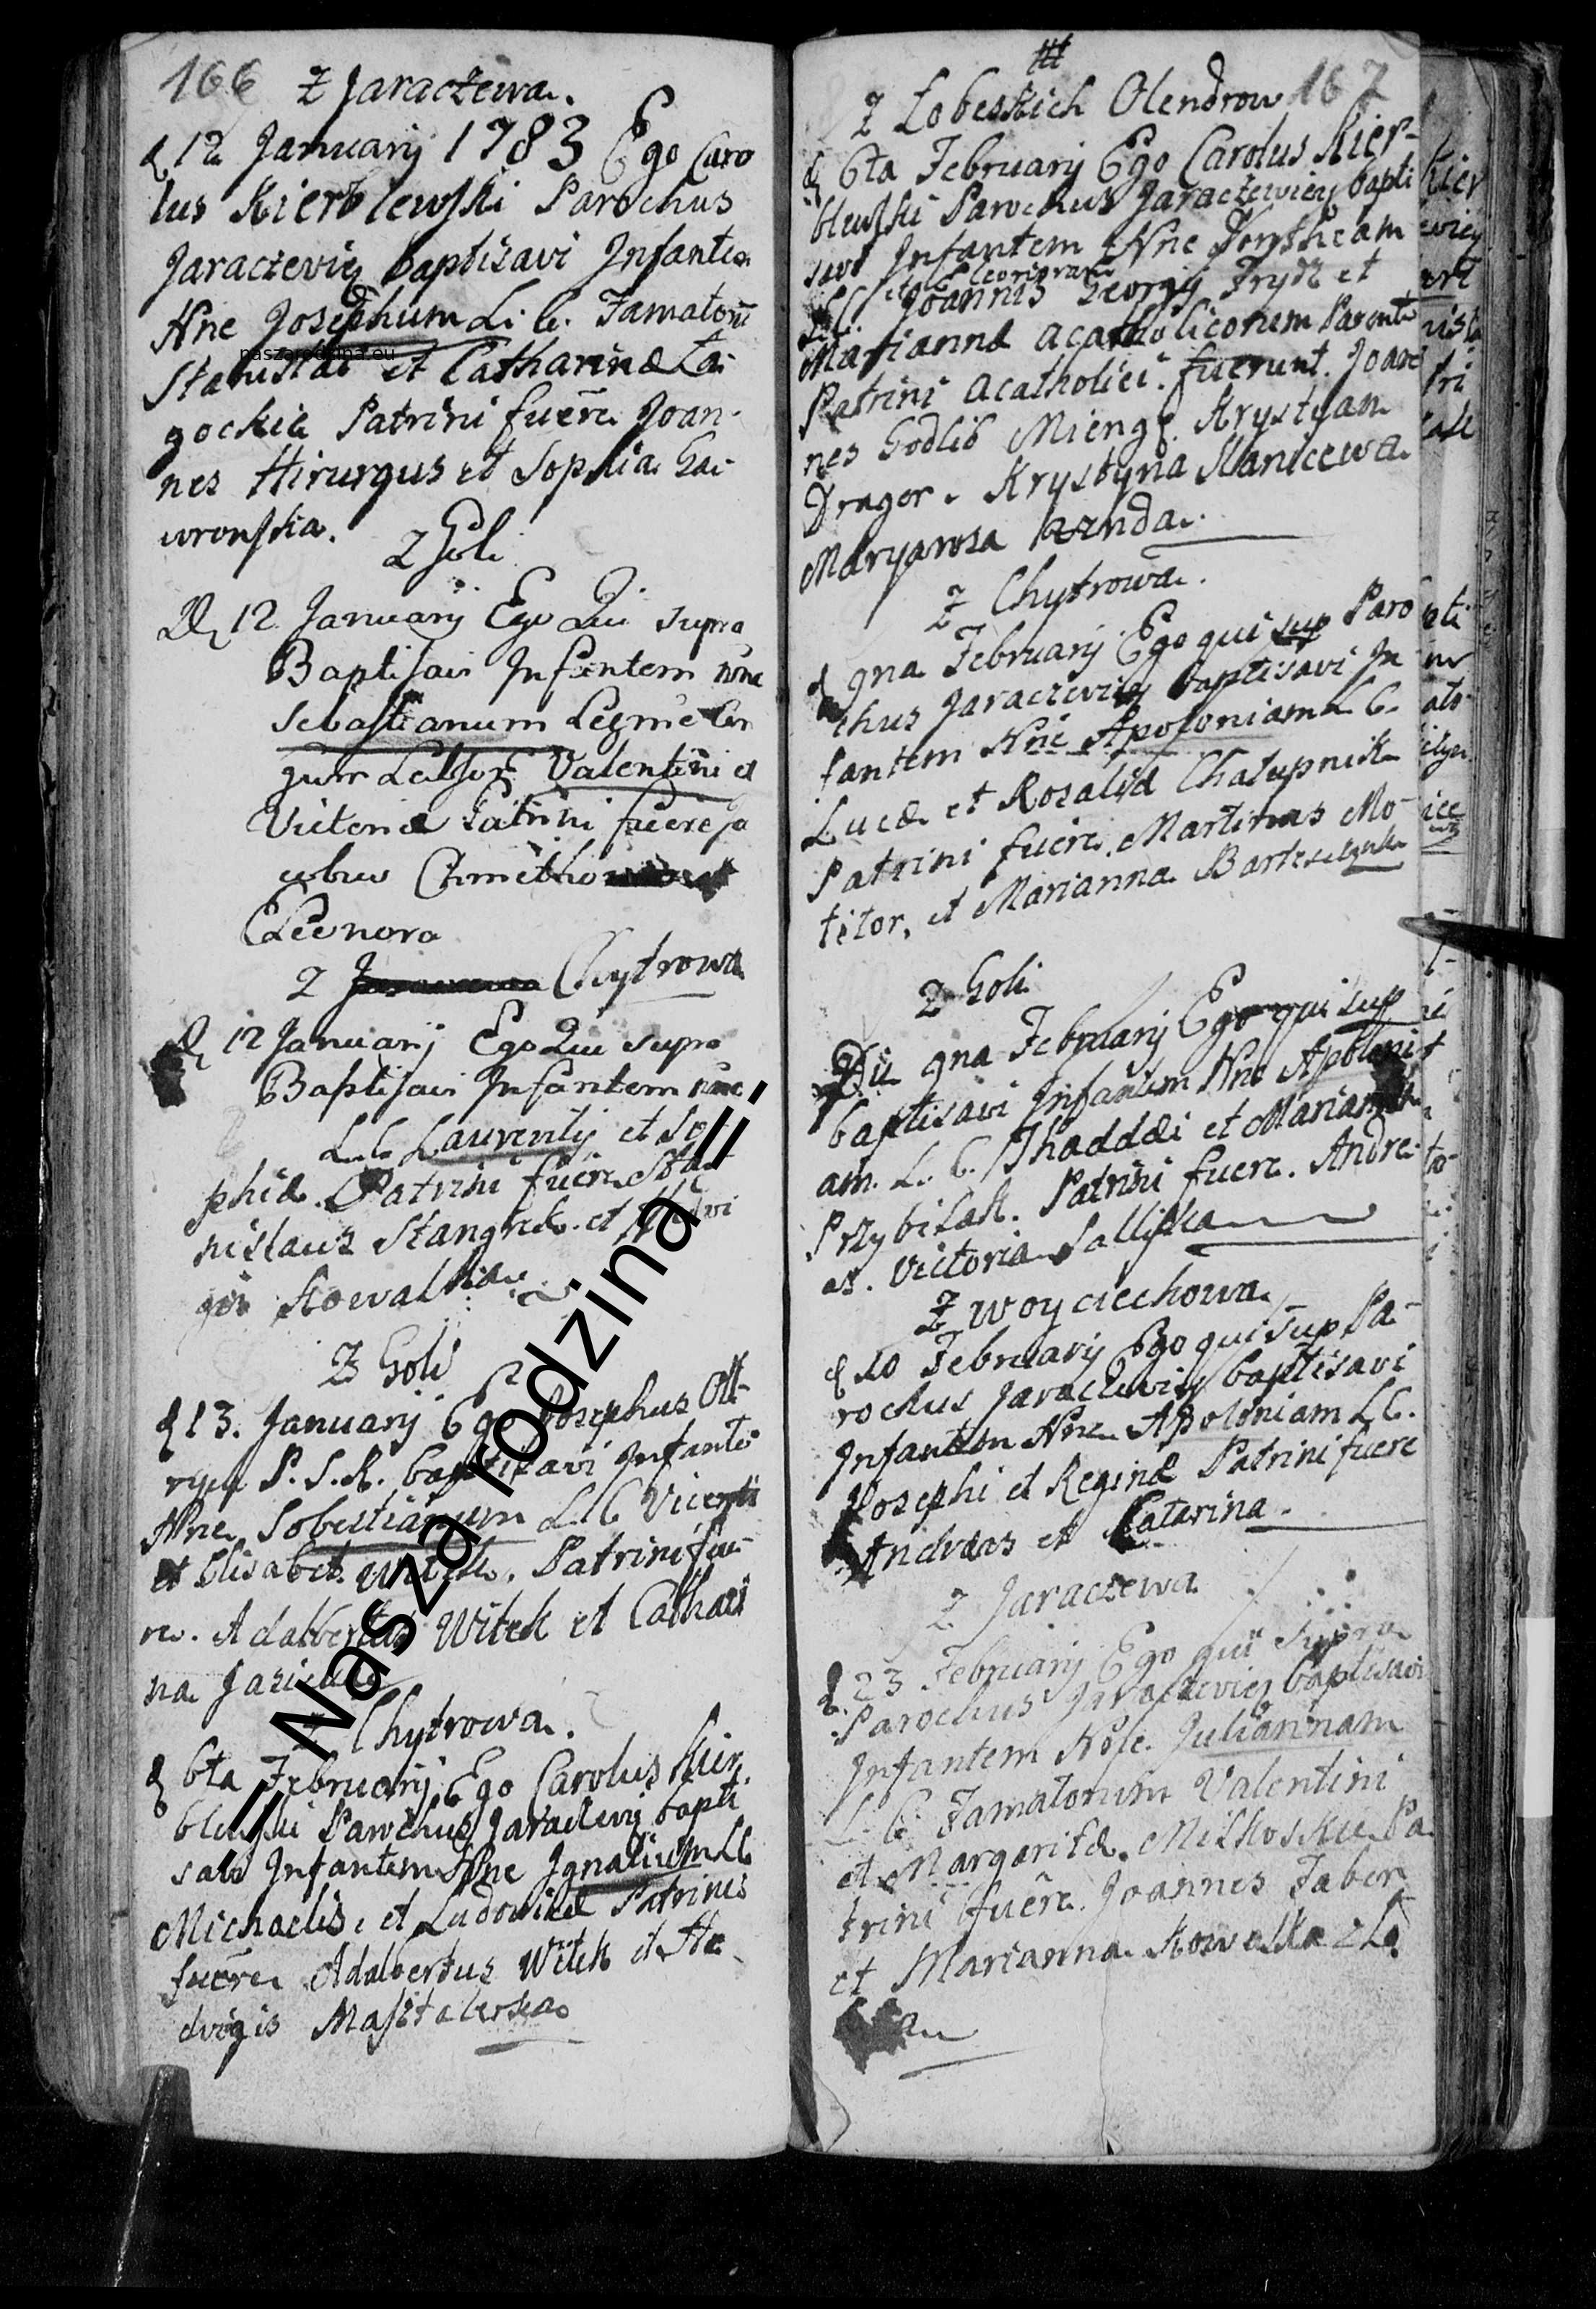 166 Z Jaraczewa.
d 12 Januarij 1783 Ego Caro
lus Kierblewski Parochus
Jaraczevien baptisavi Infantem
Nne Josephum L. C. Famatorum
Stanislai et Catharinæ Ła-
naszarodzina.eu
gockie Patrini fuere Joan-
nes Hirurgus et Sophia Ga-
wronska.
Z Goli
D 12 Januarij Ego Qui supra
Baptisavi Infantem nomine
Sebastianum
Valentini et
Victoriæ Patrini fuere Ja
cobus
Eleonora
Z Chytrowa
D 12 Januarij Ego Qui supra
Baptisavi Infantem nomine
L. C. Laurentij et So
phiæ. Patrini fuere Sta
nislaus Stangrek et Hedvi
gis Kowalska
Z Goli
d 13. Januarij Ego Josephus
P. S. R. baptisavi Infantem
Nne Sobestianum L. C. Vicenti
et Elisabet. Witek. Patrini fue-
re. Adalbertus Witek et Cathari
na
Z Chytrowa.
d 6ta Februarij Ego Carolus Kier
blewski Parochus Jaraczevij bapti
savi Infantem Nne Ignatium L C
Michaelis, et Ludovicæ Patrines
fuere Adalbertus Witek et He-
dvigis Masztalerska
|| Nasza rodzina ||
Z Łobeskich Olendrow 167
d 6ta Februarij Ego Carolus Kier-
blewski Parochus Jaraczewien bapti
savi Infantem Nne Dorotheam
et Eleonoram
L. C. Joannis Georgij Frydr et
Mariannæ acatholicorum Parente
Patrini acatholici. fuerunt. Joan
nes Godlib Mieng. Krystyan
Drager. Krystyna Kanicewa.
Maryarosa
Z Chytrowa.
d gna Februarij Ego qui sup Paro
chus Jaraczevien baptisavi In
fantem Nne Apoloniam L C.
Lucæ et Rosaliæ Chałupnik
Patrini fuere Martinus Mo-
litor, et Marianna
Z Goli
Die gna Februarij Ego qui sup
baptisavi Infantem Nne Apoloni
am. L. C. Thaddæi et Mariannæ
Przybilak. Patrini fuere. Andre-
as. Victoria
Z Woyciechowa
d 10 Februarij Ego qui sup Pa-
rochus Jaraczevien baptisavi
Infantem Nne Apoloniam L C.
Josephi et Reginæ Patrini fuere
Andreas et Catarina.
Z Jaraczewa
d. 23 Februarij Ego qui supra
Parochus Jaraczevien baptisavi
Infantem Nole. Juliannam
L. C. Famatorum Valentini
et Margaritæ. Miłkoskie Pa
trini fuere. Joannes Faber
et Marianna Kowalka